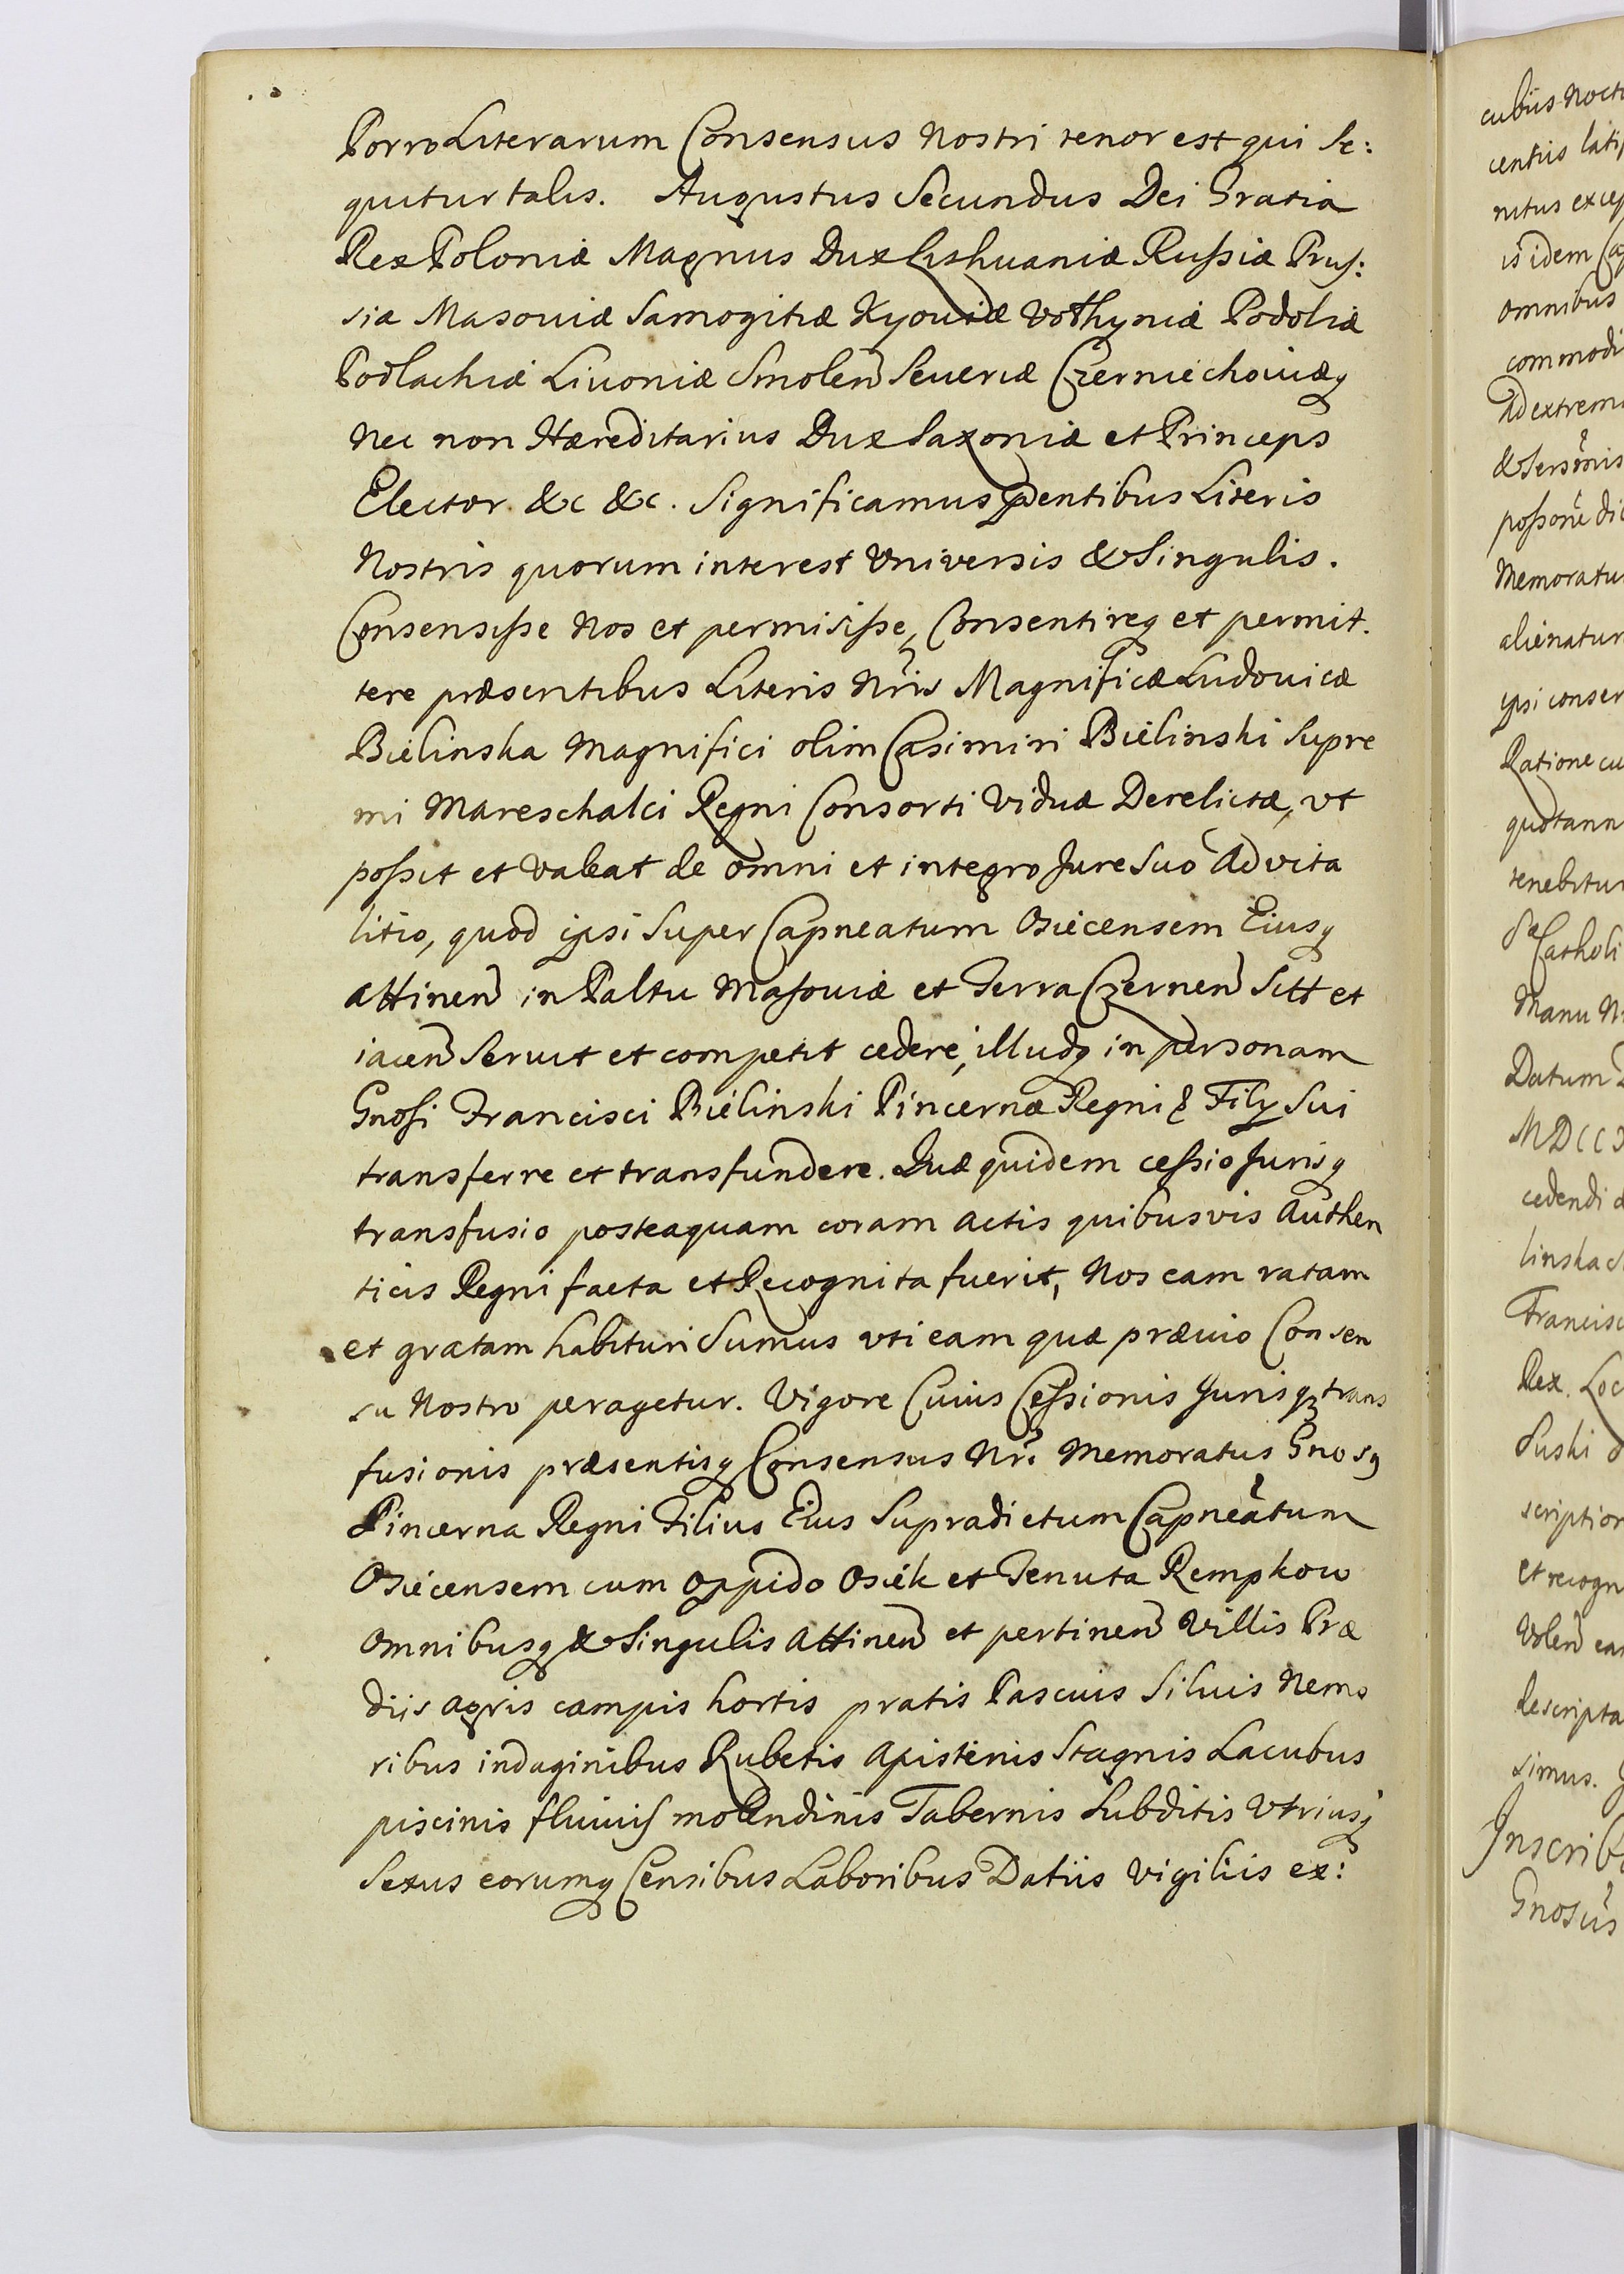 Porro Literarum Consensus Nostri tenor est qui se:
quitur talis. Augustus Secundus Dei Gratia
Rex Poloniæ Magnus Dux Lithuaniæ Russiæ Prus:
siæ Masoviæ Samogitiæ Kyoviæ Volhyniæ Podoliæ
Podlachiæ Livoniæ Smolen Severiæ Czerniechoviæq
Nec non Hæreditarius Dux Saxoniæ et Princeps
Elector &c &c. Significamus pntibus Literis
Nostris quorum interest Universis & Singulis.
Consensisse Nos et permisisse, Consentireq et permit.
tere præsentibus Literis Nris Magnificæ Ludovicæ
Bielinska Magnifici olim Casimiri Bielinski Supre
mi Mareschalci Regni Consorti Viduæ Derelictæ, vt
possit et valeat de omni et integro Jure Suo Advita
litio, quod ipsi Super Capneatum Osiecensem Eiusq
attinen in Paltu Masoviæ et Terra Czernen Sitt et
iacen Servit et competit cedere, illudq in personam
Gnosi Francisci Bielinski Pincernæ Regni & Filÿ Sui
transferre et transfundere. Quæ quidem cessio Jurisq
transfusio posteaquam coram actis quibusvis Authen
ticis Regni facta et Recognita fuerit, Nos eam ratam
et gratam habituri Sumus vti eam quæ prævio Consen
su Nostro peragetur. Vigore Cuius Cessionis Jurisq trans
fusionis præsentisq Consensus Nri Memoratus Gnosq
Pincerna Regni Filius Eius Supradictum Capneatum
Osiecensem cum Oppido Osiek et Tenuta Rempkow
Omnibusq & Singulis Attinen et pertinen Villis Præ
diis agris campis hortis pratis Pascuis Silvis Nemo
ribus indaginibus Rubetis Apisterijs Stagnis Lacubus
piscinis fluvijs molendinis Tabernis Subditis Vtriusq
Sexus eorumq Censibus Laboribus Datiis Vigiliis ex: